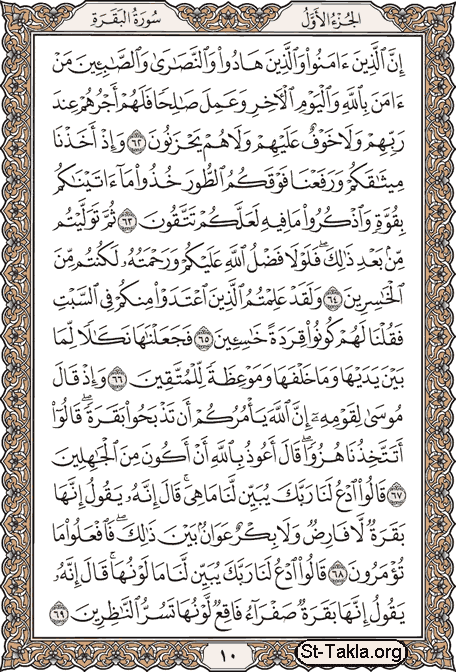 الجُزْءُ الأَوَّلُ
سُورَةُ البَقَرَةِ
إِنَّ ٱلَّذِينَ ءَامَنُواْ وَٱلَّذِينَ هَادُواْ وَٱلنَّصَٰرَىٰ وَٱلصَّٰبِـِٔينَ مَنْ
ءَامَنَ بِٱللَّهِ وَٱلْيَوْمِ ٱلْـَٔاخِرِ وَعَمِلَ صَٰلِحًا فَلَهُمْ أَجْرُهُمْ عِندَ
رَبِّهِمْ وَلَا خَوْفٌ عَلَيْهِمْ وَلَا هُمْ يَحْزَنُونَ ٦٢ وَإِذْ أَخَذْنَا
مِيثَٰقَكُمْ وَرَفَعْنَا فَوْقَكُمُ ٱلطُّورَ خُذُواْ مَآ ءَاتَيْنَٰكُم
بِقُوَّةٍ وَٱذْكُرُواْ مَا فِيهِ لَعَلَّكُمْ تَتَّقُونَ ٦٣ ثُمَّ تَوَلَّيْتُم
مِّنۢ بَعْدِ ذَٰلِكَ ۖ فَلَوْلَا فَضْلُ ٱللَّهِ عَلَيْكُمْ وَرَحْمَتُهُۥ لَكُنتُم مِّنَ
ٱلْخَٰسِرِينَ ٦٤ وَلَقَدْ عَلِمْتُمُ ٱلَّذِينَ ٱعْتَدَوْاْ مِنكُمْ فِى ٱلسَّبْتِ
فَقُلْنَا لَهُمْ كُونُواْ قِرَدَةً خَٰسِـِٔينَ ٦٥ فَجَعَلْنَٰهَا نَكَٰلًا لِّمَا
بَيْنَ يَدَيْهَا وَمَا خَلْفَهَا وَمَوْعِظَةً لِّلْمُتَّقِينَ ٦٦ وَإِذْ قَالَ
مُوسَىٰ لِقَوْمِهِۦٓ إِنَّ ٱللَّهَ يَأْمُرُكُمْ أَن تَذْبَحُواْ بَقَرَةً ۖ قَالُوٓاْ
أَتَتَّخِذُنَا هُزُوًا ۖ قَالَ أَعُوذُ بِٱللَّهِ أَنْ أَكُونَ مِنَ ٱلْجَٰهِلِينَ
٦٧ قَالُواْ ٱدْعُ لَنَا رَبَّكَ يُبَيِّن لَّنَا مَا هِىَ ۚ قَالَ إِنَّهُۥ يَقُولُ إِنَّهَا
بَقَرَةٌ لَّا فَارِضٌ وَلَا بِكْرٌ عَوَانٌۢ بَيْنَ ذَٰلِكَ ۖ فَٱفْعَلُواْ مَا
تُؤْمَرُونَ ٦٨ قَالُواْ ٱدْعُ لَنَا رَبَّكَ يُبَيِّن لَّنَا مَا لَوْنُهَا ۚ قَالَ إِنَّهُۥ
يَقُولُ إِنَّهَا بَقَرَةٌ صَفْرَآءُ فَاقِعٌ لَّوْنُهَا تَسُرُّ ٱلنَّٰظِرِينَ ٦٩
١٠
St-Takla.org